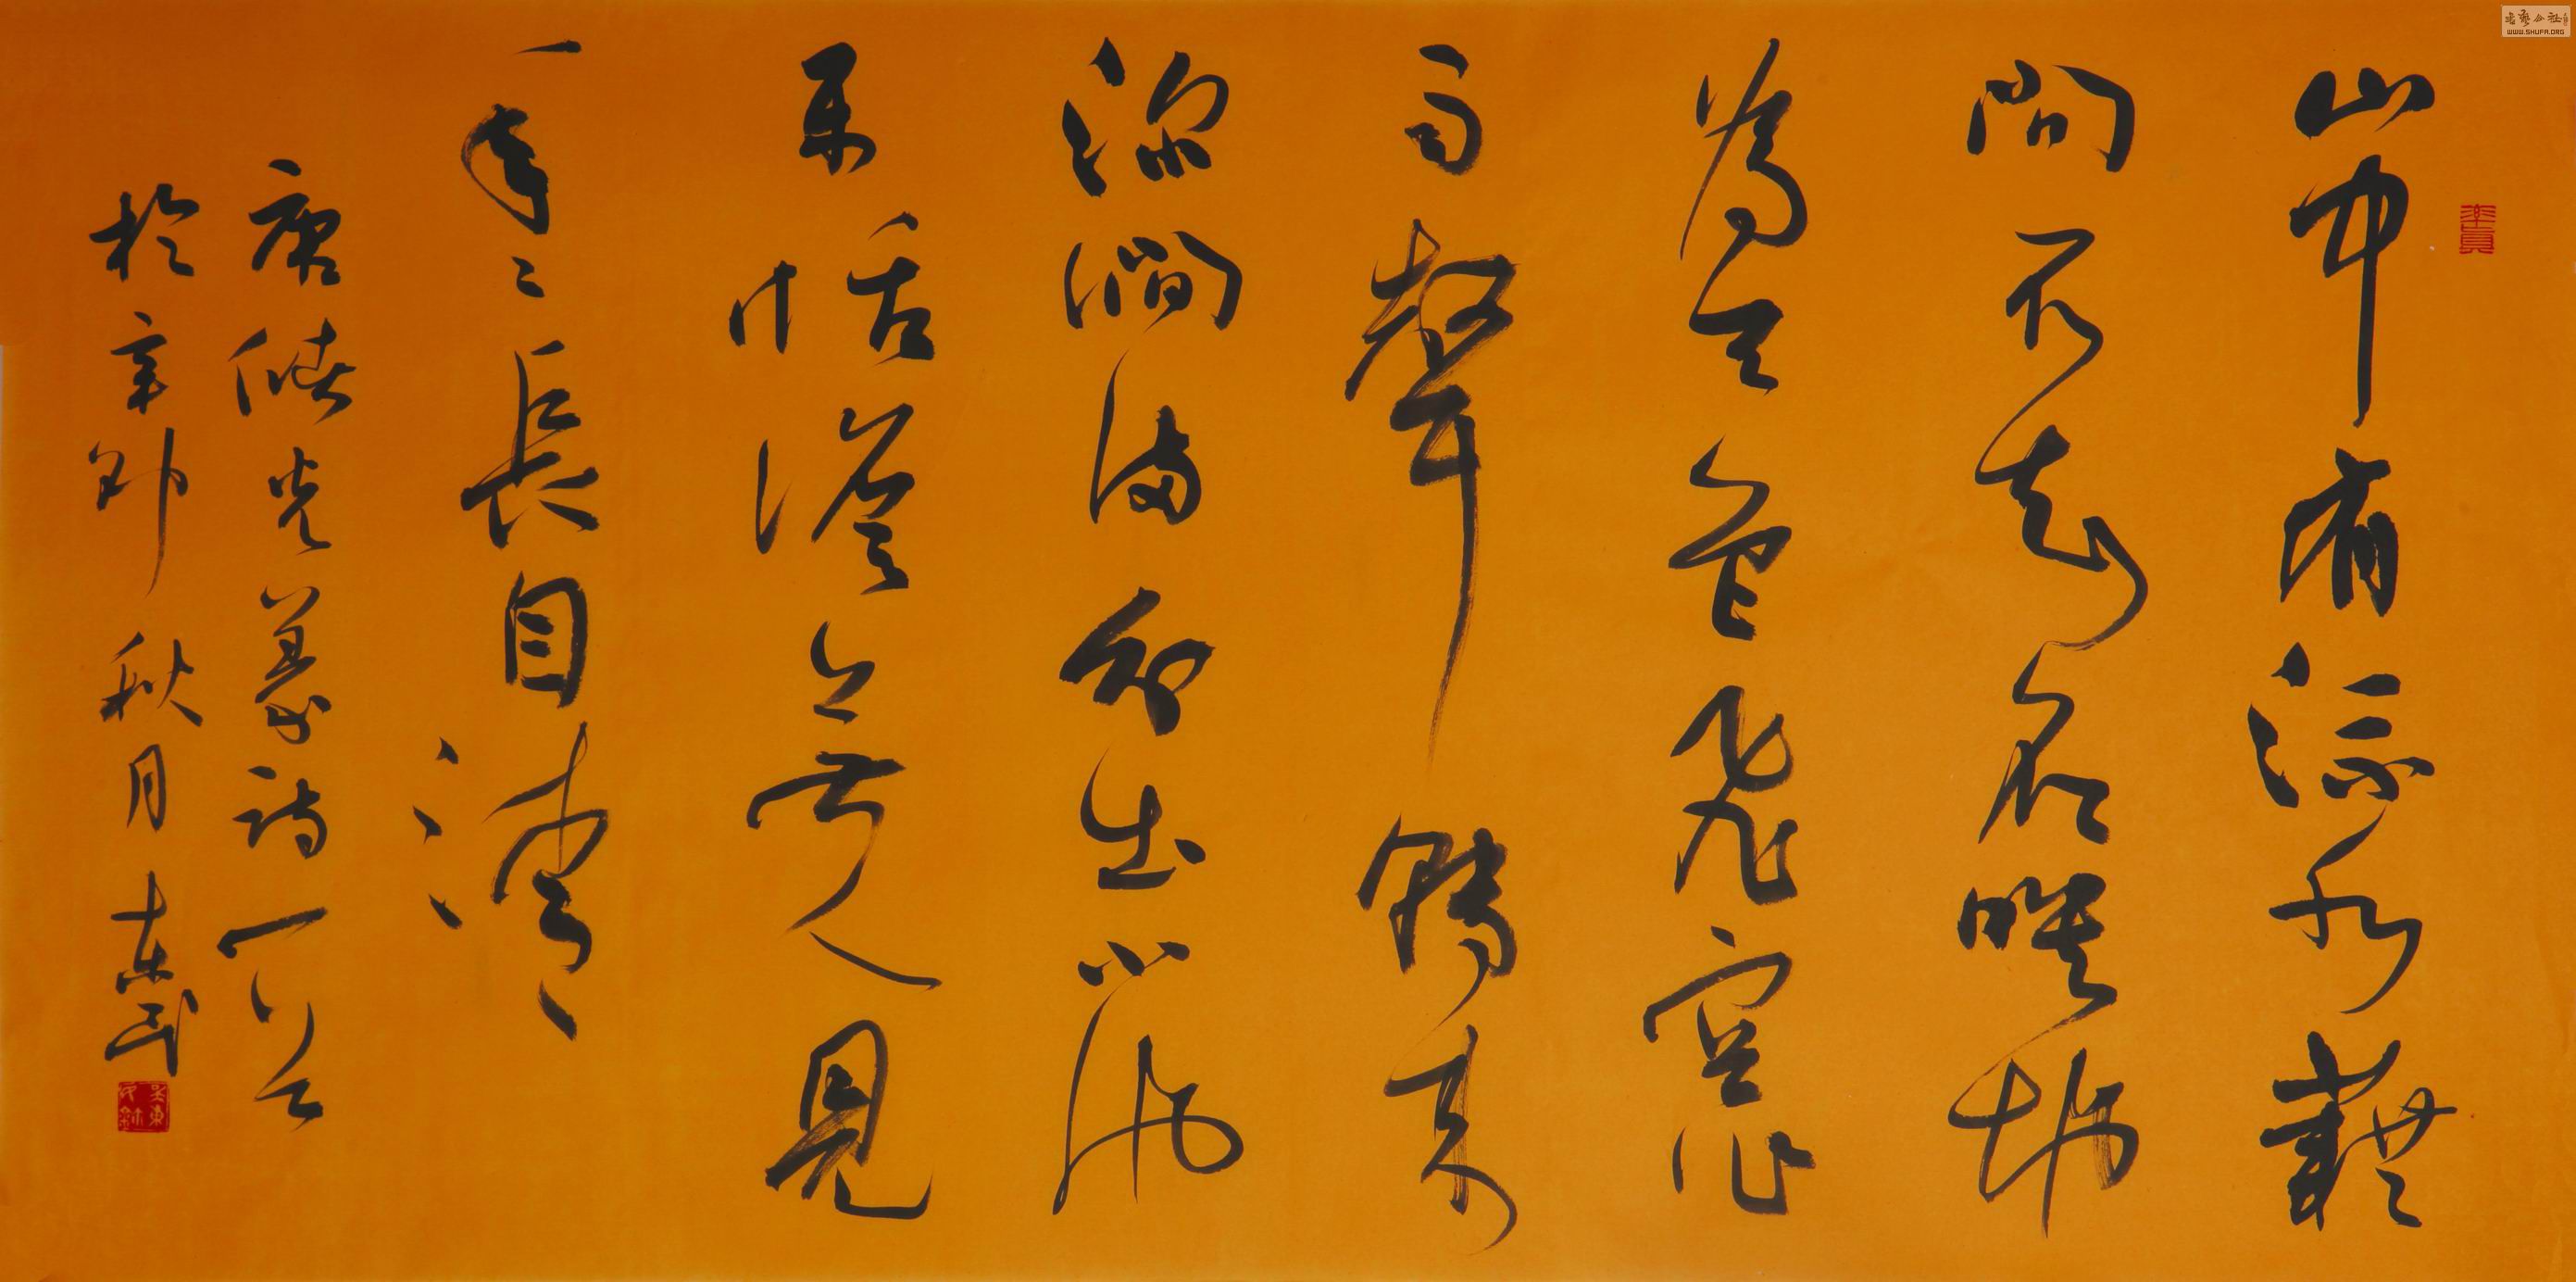 山中有流水藉
問不知名映地
為天色飛空作
雨聲轉來
深澗滿分出小池
平恬澹無人見
年〻長自清
唐儲光羲詩一首
於辛卯秋月東民
书艺公社
WWW.SHUFA.ORG